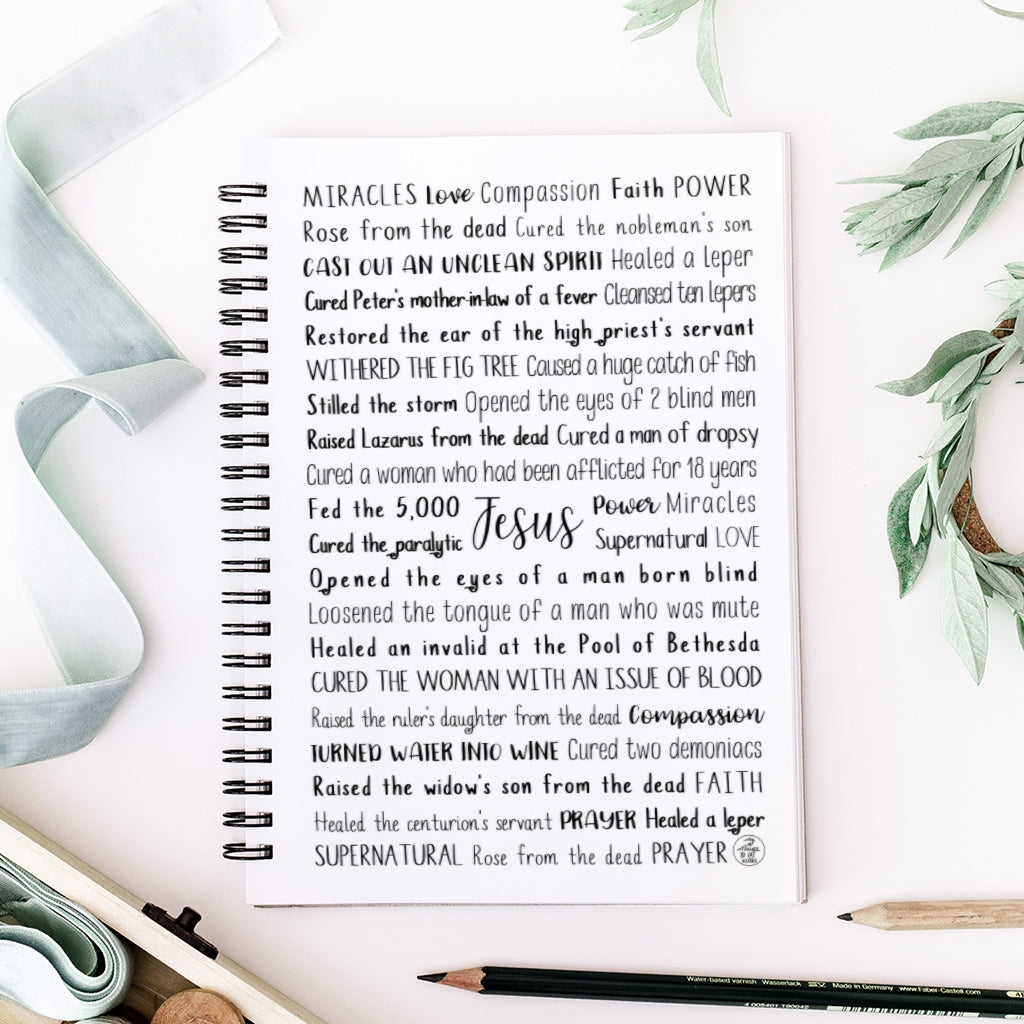 MIRACLES Love Compassion Faith POWER
Rose from the dead Cured the nobleman's son
CAST OUT AN UNCLEAN SPIRIT Healed a leper
Cured Peter's mother-in-law of a fever Cleansed ten lepers
Restored the ear of the high priest's servant
WITHERED THE FIG TREE Caused a huge catch of fish
Stilled the storm Opened the eyes of 2 blind men
Raised Lazarus from the dead Cured a man of dropsy
Cured a woman who had been afflicted for 18 years
Fed the 5,000 Jesus Power Miracles
Cured the paralytic Supernatural LOVE
Opened the eyes of a man born blind
Loosened the tongue of a man who was mute
Healed an invalid at the Pool of Bethesda
CURED THE WOMAN WITH AN ISSUE OF BLOOD
Raised the ruler's daughter from the dead Compassion
TURNED WATER INTO WINE Cured two demoniacs
Raised the widow's son from the dead FAITH
Healed the centurion's servant PRAYER Healed a leper
SUPERNATURAL Rose from the dead PRAYER
Water-based varnish Wasserlack Made in Germany www.Faber-Castell.com
4 005401 190042